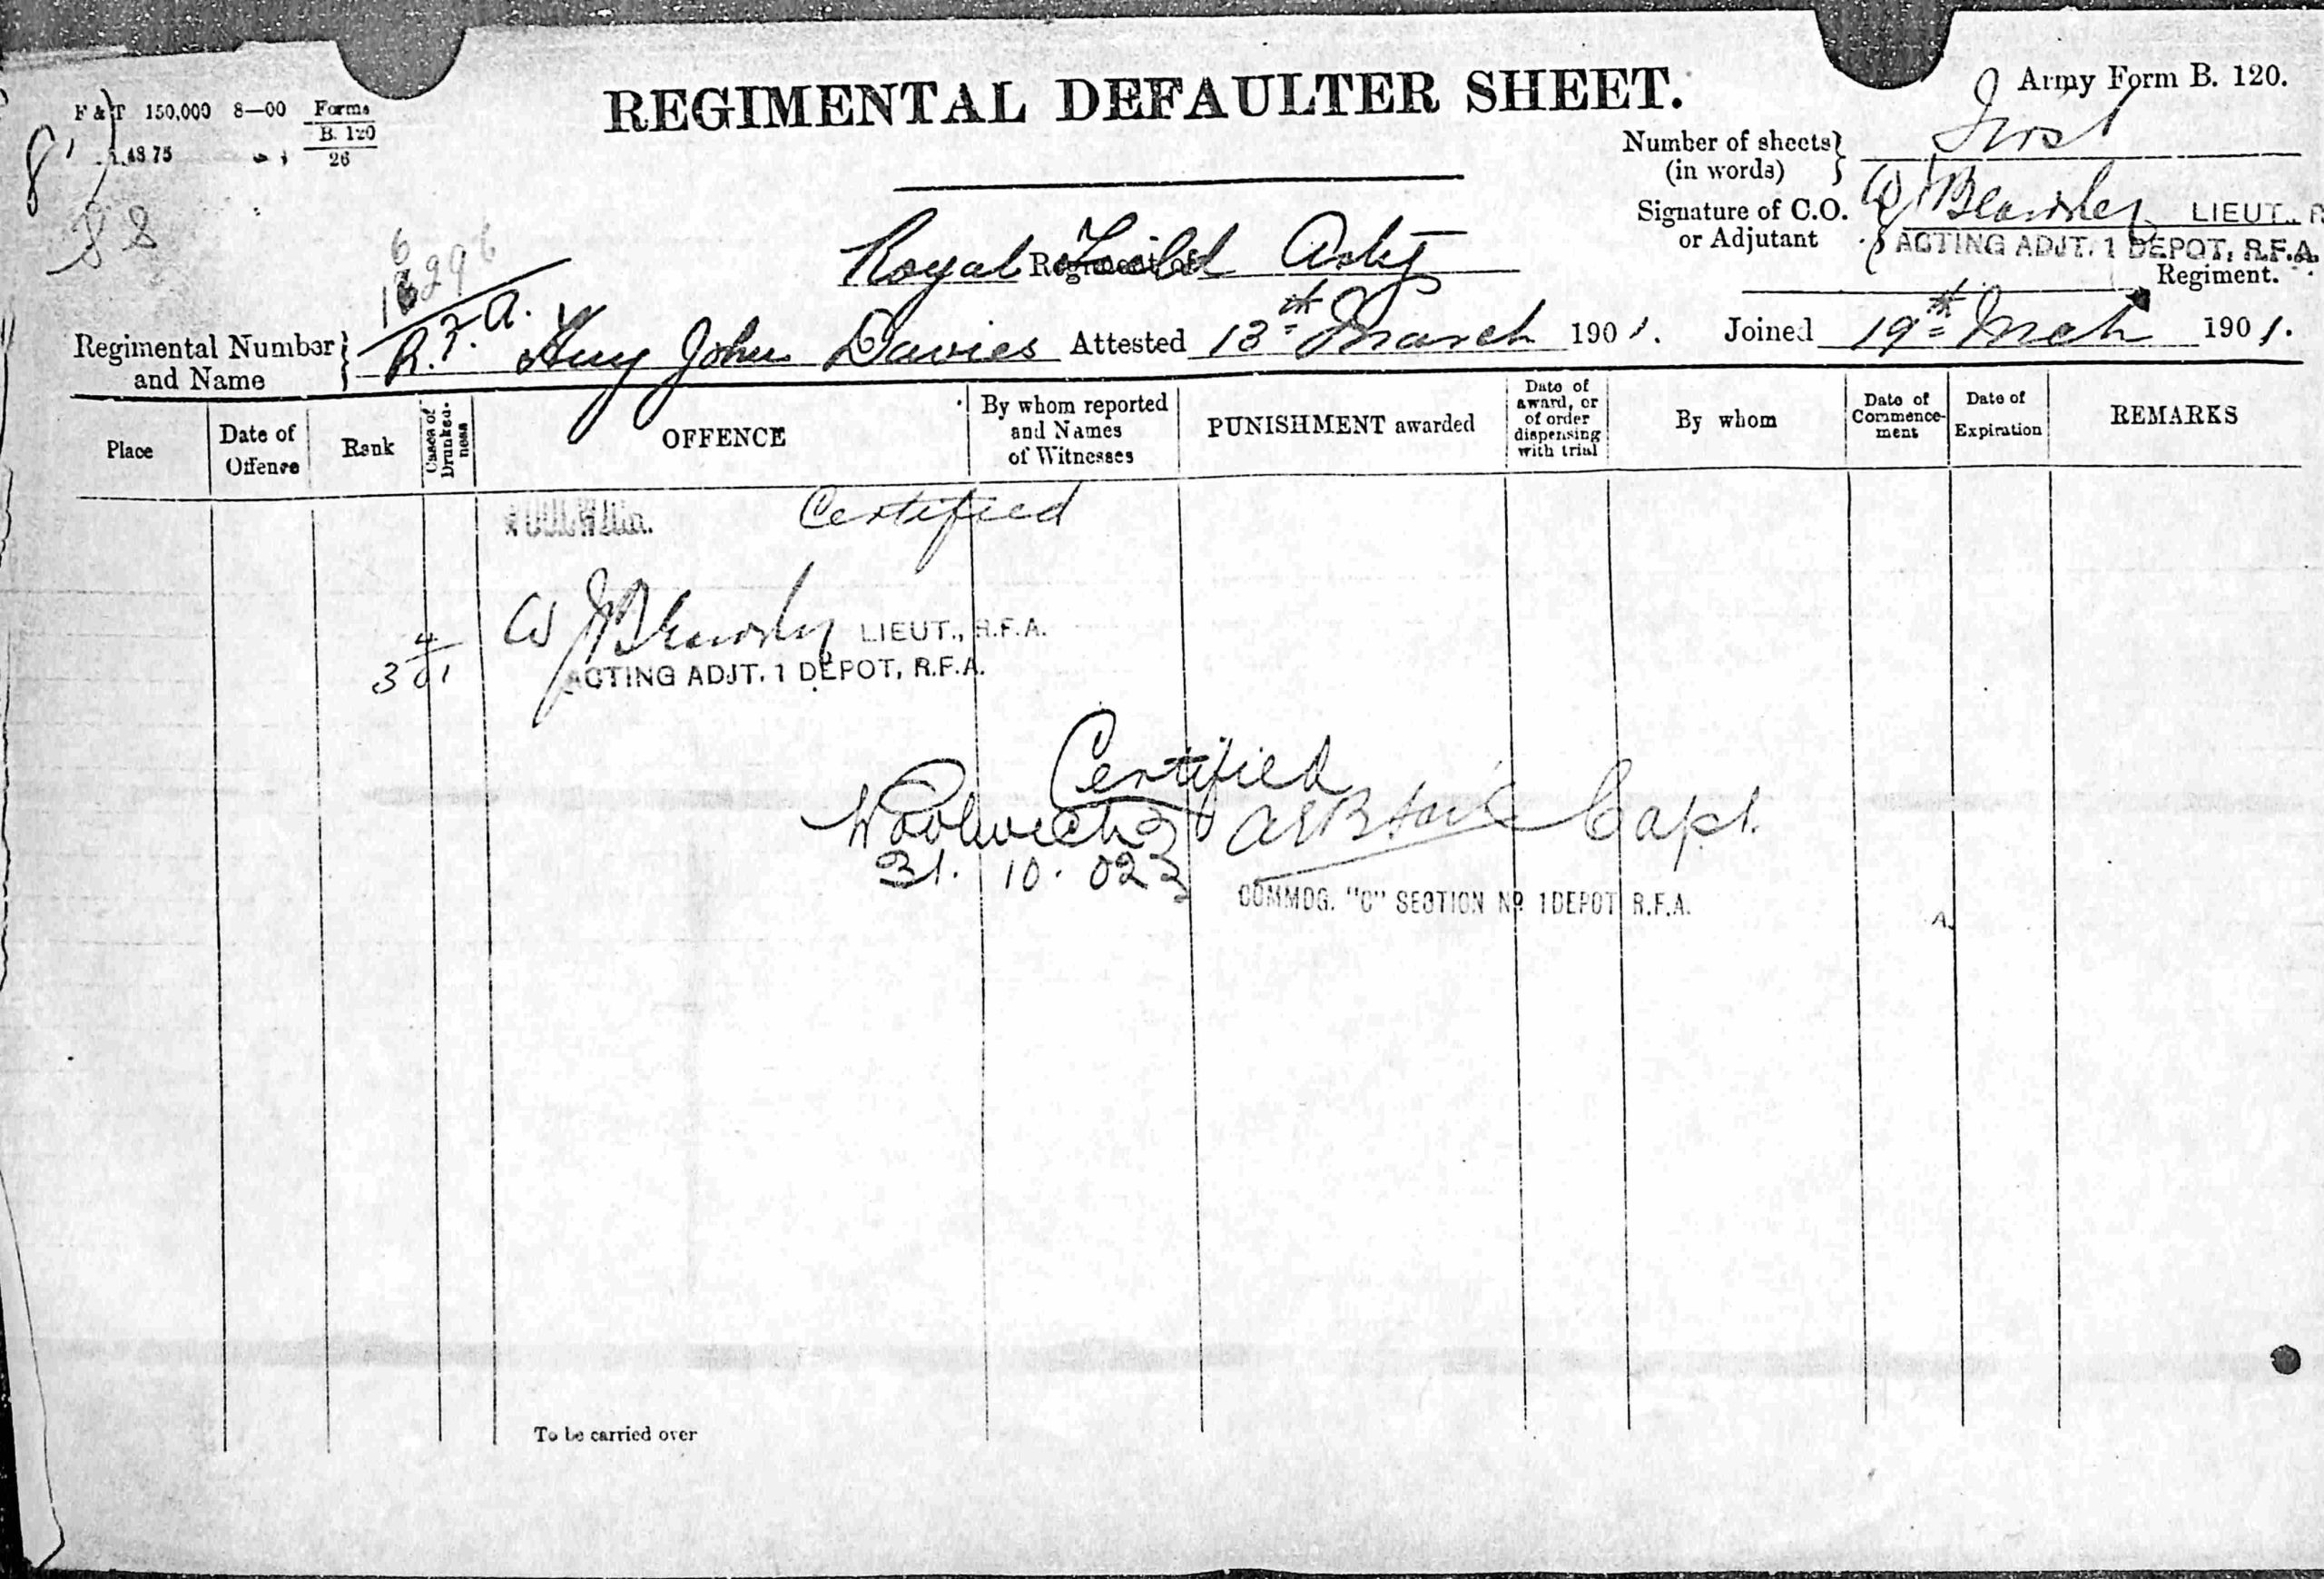 REGIMENTAL DEFAULTER SHEET.
Army Form B. 120.
F & T 150,000 8—00 Forms
B. 120
26
88
Number of sheets
(in words) First
Signature of C.O.
or Adjutant
LIEUT.,
ACTING ADJT. 1 DEPOT, R.F.A.
Royal Feild Arty
Regiment.
Regimental Number
and Name
R.F.A. Hny John Davies Attested 13th March 1901. Joined 19th Mch 1901.
Place
Date of
Offence
Rank
Cases of
Drunken-
ness
OFFENCE
By whom reported
and Names
of Witnesses
PUNISHMENT awarded
Date of
award, or
of order
dispensing
with trial
By whom
Date of
Commence-
ment
Date of
Expiration
REMARKS
Certified
LIEUT., R.F.A.
3 4/01
ACTING ADJT. 1 DEPOT, R.F.A.
Certified
Woolwich
Capt.
31. 10. 02
COMMDG. "C" SECTION No 1 DEPOT R.F.A.
To be carried over